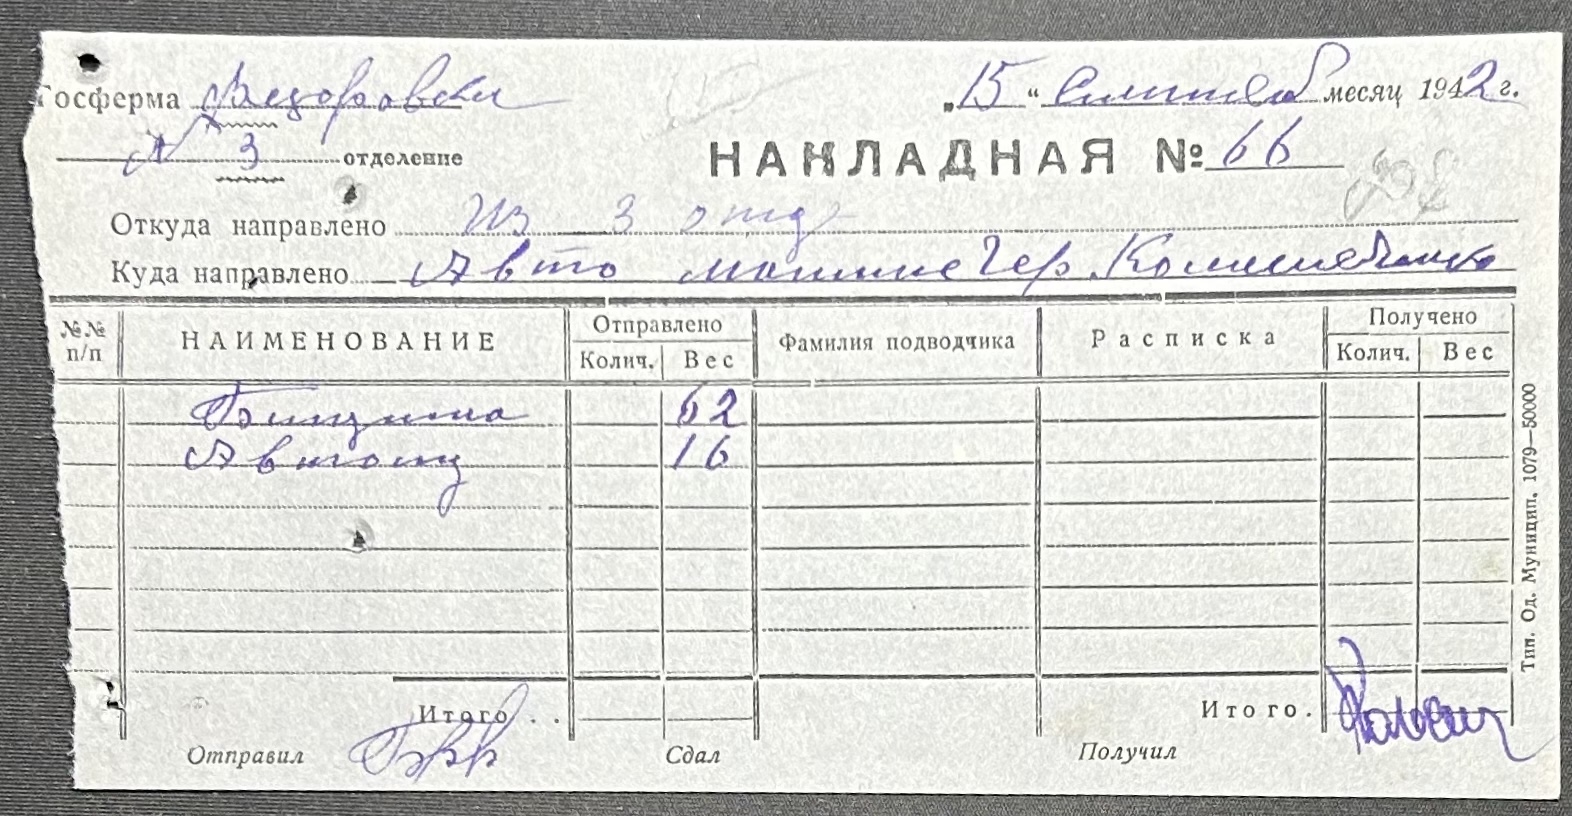 Госферма Федоровски
№ 3 отделение
„15“ месяц 1942 г.
НАКЛАДНАЯ № 66
Откуда направлено Из 3 отд
Куда направлено Авто машине Гер.
№№ п/п НАИМЕНОВАНИЕ Отправлено Колич. Вес Фамилия подводчика Расписка Получено Колич. Вес
Бензина 62
Автол 16
Итого . . Итого.
Отправил Сдал Получил
Тип. Од. Муницип. 1079—50000